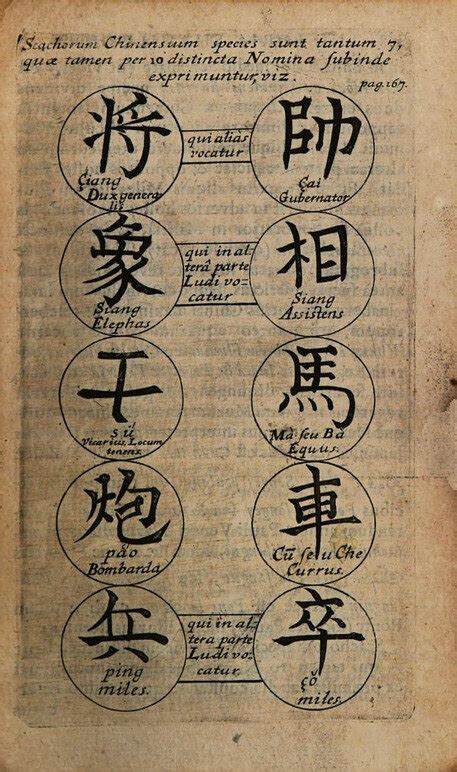 Scachorum Chinensium species sunt tantum 7,
quæ tamen per 10 distincta Nomina subinde
exprimuntur, viz.
pag. 167.
將
Çiang
Dux genera
lis
qui alias
vocatur
帥
Çai
Gubernator
象
Siang
Elephas
qui in al-
terâ parte
Ludi vo-
catur
相
Siang
Assistens
干
sú
Vicarius, Locum
tenens.
馬
Ma seu Ba
Equus.
炮
páo
Bombarda
車
Cū seu Che
Currus.
兵
ping
miles.
qui in al-
tera parte
Ludi vo-
catur
卒
çŏ
miles.